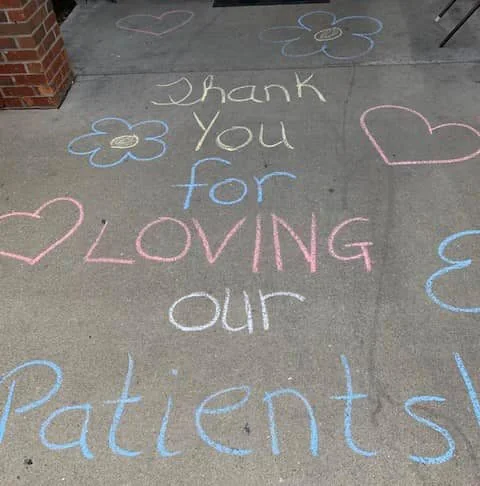 Thank
You
for
LOVING
our
Patients!